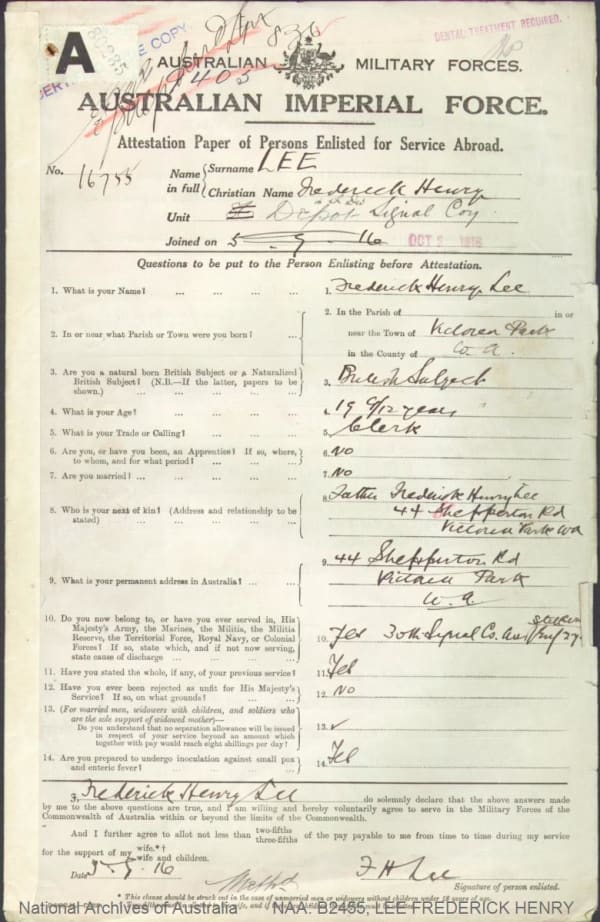 DENTAL TREATMENT REQUIRED.
No
A
COPY
836
1405
AUSTRALIAN MILITARY FORCES.
AUSTRALIAN IMPERIAL FORCE.
Attestation Paper of Persons Enlisted for Service Abroad.
No. 16755
Name in full { Surname LEE
Christian Name Frederick Henry
Unit Depot Signal Coy
Joined on 5 - 9 - 16 OCT
Questions to be put to the Person Enlisting before Attestation.
1. What is your Name? ... ... ... ... 1. Frederick Henry Lee
2. In or near what Parish or Town were you born? ... ... 2. In the Parish of in or
near the Town of Victoria Park
in the County of W. A.
3. Are you a natural born British Subject or a Naturalized
British Subject? (N.B.—If the latter, papers to be
shown.) ... ... ... ... 3. British Subject
4. What is your Age? ... ... ... ... 4. 19 9/12 years
5. What is your Trade or Calling? ... ... ... 5. Clerk
6. Are you, or have you been, an Apprentice? If so, where,
to whom, and for what period? ... ... ... 6. No
7. Are you married? ... ... ... ... 7. No
8. Who is your next of kin? (Address and relationship to be
stated) ... ... ... ... 8. Father Frederick Henry Lee
44 Shepperton Rd
Victoria Park WA
9. What is your permanent address in Australia? ... ... 9. 44 Shepperton Rd
Victoria Park
W. A
10. Do you now belong to, or have you ever served in, His
Majesty's Army, the Marines, the Militia, the Militia
Reserve, the Territorial Force, Royal Navy, or Colonial
Forces? If so, state which, and if not now serving,
state cause of discharge ... ... ... 10. Yes 30th Signal Co.
11. Have you stated the whole, if any, of your previous service? 11. Yes
12. Have you ever been rejected as unfit for His Majesty's
Service? If so, on what grounds? ... ... 12. NO
13. (For married men, widowers with children, and soldiers who
are the sole support of widowed mother)—
Do you understand that no separation allowance will be issued
in respect of your service beyond an amount which
together with pay would reach eight shillings per day? 13. ✓
14. Are you prepared to undergo inoculation against small pox
and enteric fever? ... ... ... ... 14. Yes
I, Frederick Henry Lee do solemnly declare that the above answers made
by me to the above questions are true, and I am willing and hereby voluntarily agree to serve in the Military Forces of the
Commonwealth of Australia within or beyond the limits of the Commonwealth.
And I further agree to allot not less than two-fifths three-fifths of the pay payable to me from time to time during my service
for the support of my wife.*† wife and children.
Date 5 - 9 - 16 F H Lee
Signature of person enlisted.
* This clause should be struck out in the case of unmarried men or widowers without children under 18 years of age.
National Archives of Australia NAA: B2455, LEE FREDERICK HENRY